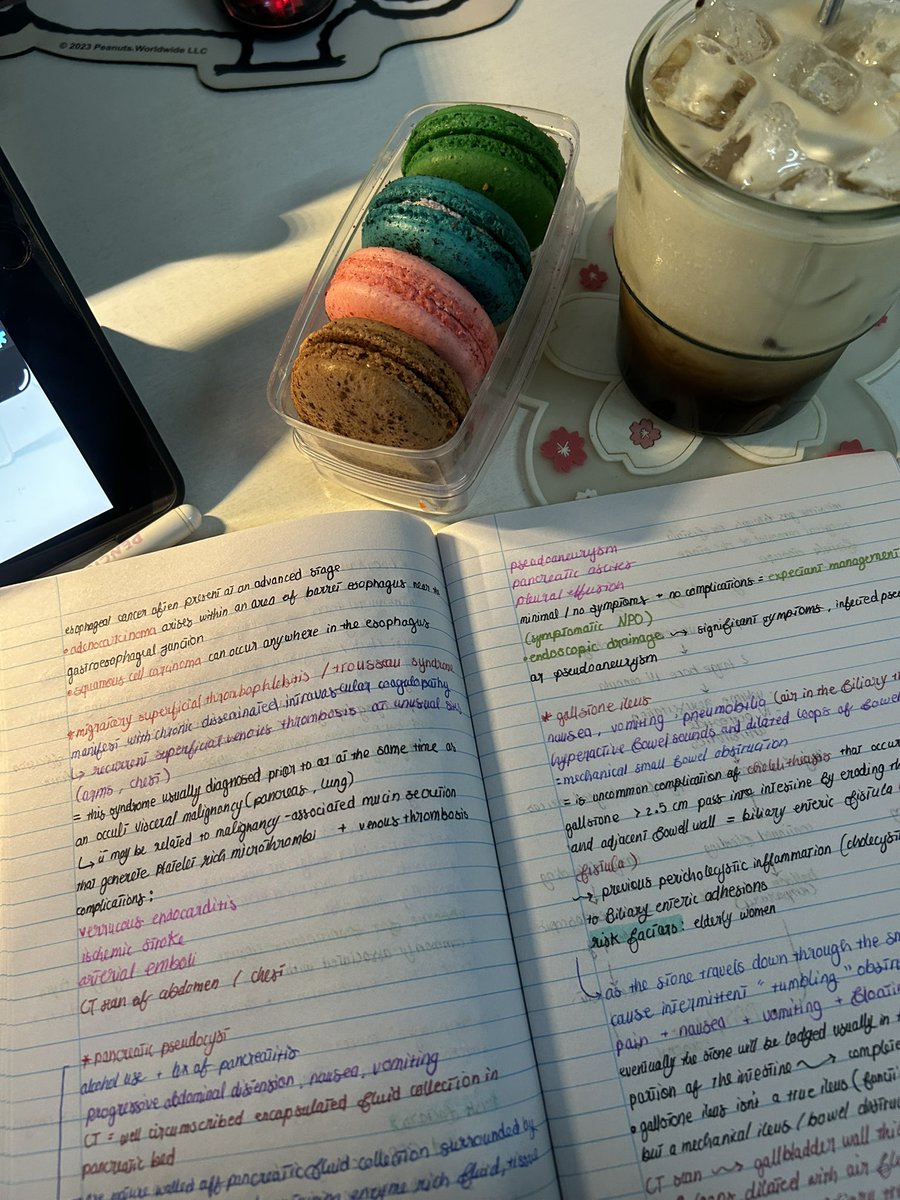 © 2023 Peanuts Worldwide LLC
esophageal cancer often present at an advanced stage
• adenocarcinoma arises within an area of barret esophagus near to
gastroesophageal junction
• squamous cell carcinoma can occur anywhere in the esophagus
*migratary superficial thrombophlebitis / trousseau syndrome
manifest with chronic disseminated intravascular coagulopathy
↳ recurrent superficial venous thrombosis at unusual
(arms, chest)
= this syndrome usually diagnosed prior to or at the same time as
an occult visceral malignancy (pancreas, lung)
↳ it may be related to malignancy-associated mucin secretion
that generate platelet rich microthrombi + venous thrombosis
complications:
verrucous endocarditis
ischemic stroke
arterial emboli
CT scan of abdomen / chest
*pancreatic pseudocyst
alcohol use + hx of pancreatitis
progressive abdominal distension, nausea, vomiting
CT = well circumscribed encapsulated fluid collection in
pancreatic bed
mature walled off pancreatic fluid collection surrounded by
enzyme rich fluid, tissue
pseudoaneurysm
pancreatic ascites
pleural effusion
minimal / no symptoms + no complications = expectant management
(symptomatic NPO)
• endoscopic drainage ⇝ significant symptoms, infected
or pseudoaneurysm
* gallstone ileus
nausea, vomiting, pneumobilia (air in the biliary
hyperactive bowel sounds and dilated loops of bowel
= mechanical small bowel obstruction
= is uncommon complication of cholelithiasis that occur
gallstone > 2.5 cm pass into intestine by eroding
and adjacent bowell wall = biliary enteric fistula
fistula)
⇝ previous pericholecystic inflammation
to biliary enteric adhesions
risk factors: elderly women
↳ as the stone travels down through the
cause intermittent "tumbling"
pain + nausea + vomiting +
eventually the stone will be lodged usually in
portion of the intestine ⇝
• gallstone ileus isn't a true ileus
but a mechanical ileus / bowel
CT scan ⇝ gallbladder wall
dilated with air